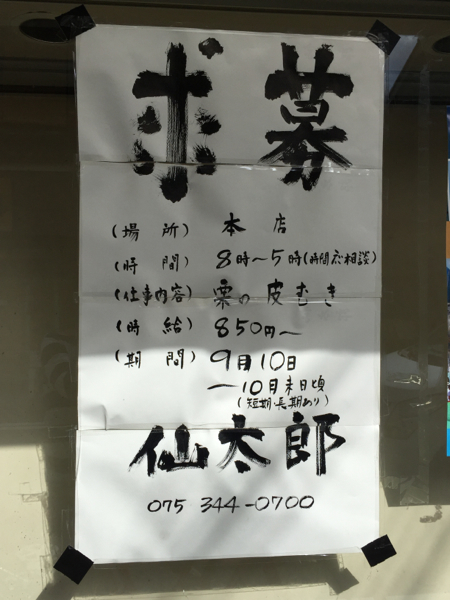 求募
(場所) 本店
(時間) 8時~5時(時間応相談)
(仕事内容) 栗の皮むき
(時給) 850円~
(期間) 9月10日
~10月末日頃
(短期長期あり)
仙太郎
075 344-0700